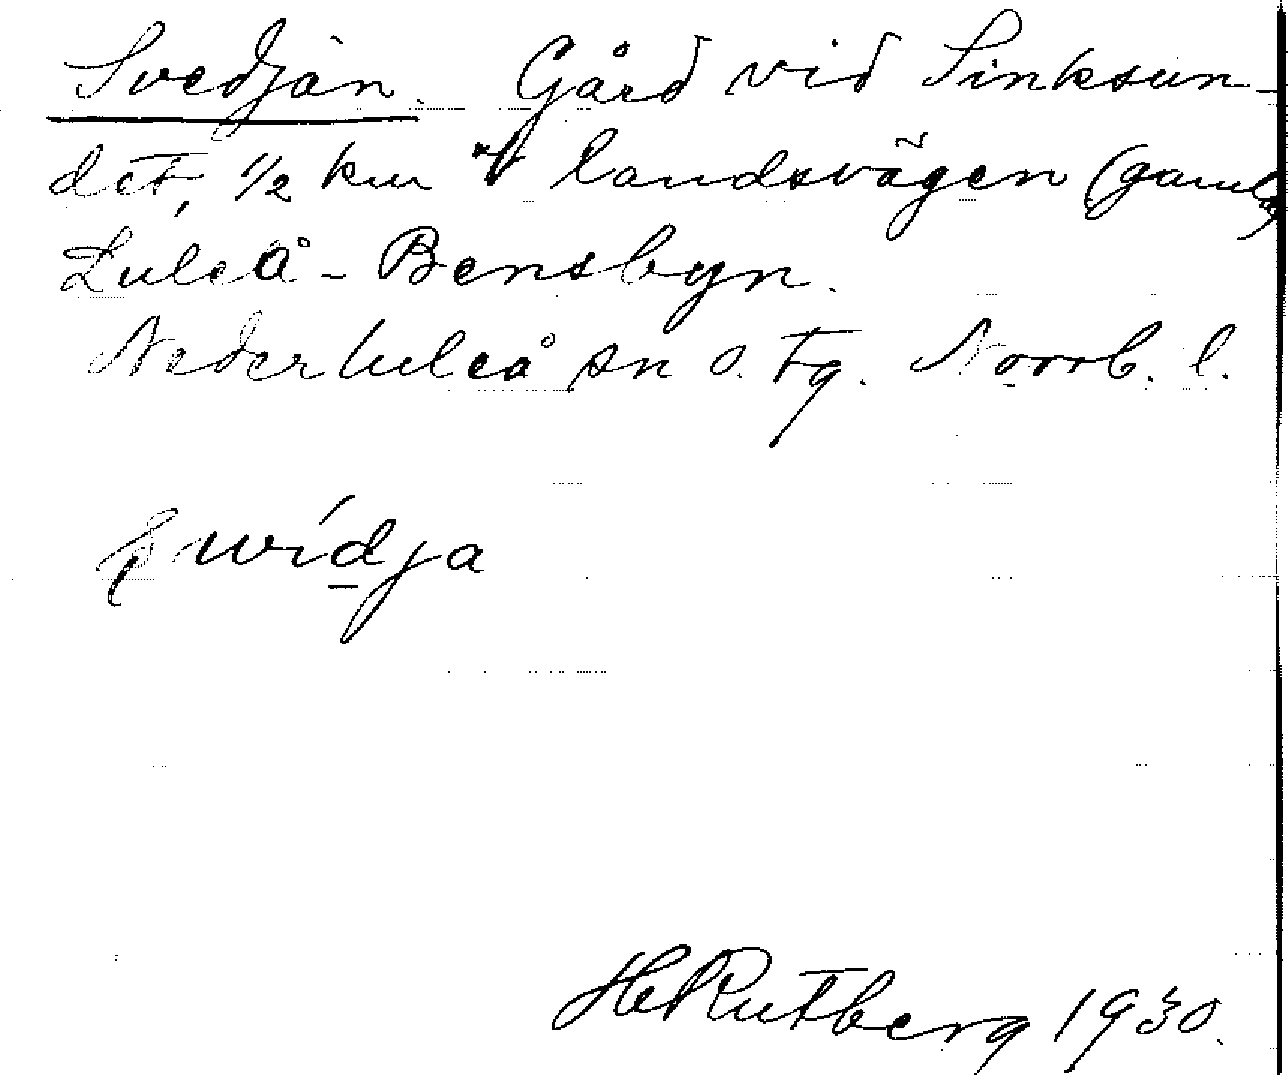 Svedjan. Gård vid Sinksun-
det, 1/2 km landsvägen (gamla)
Luleå - Bensbyn.
Nederluleå sn o. tg. Norrb. l.
swídja
H Rutberg 1930.